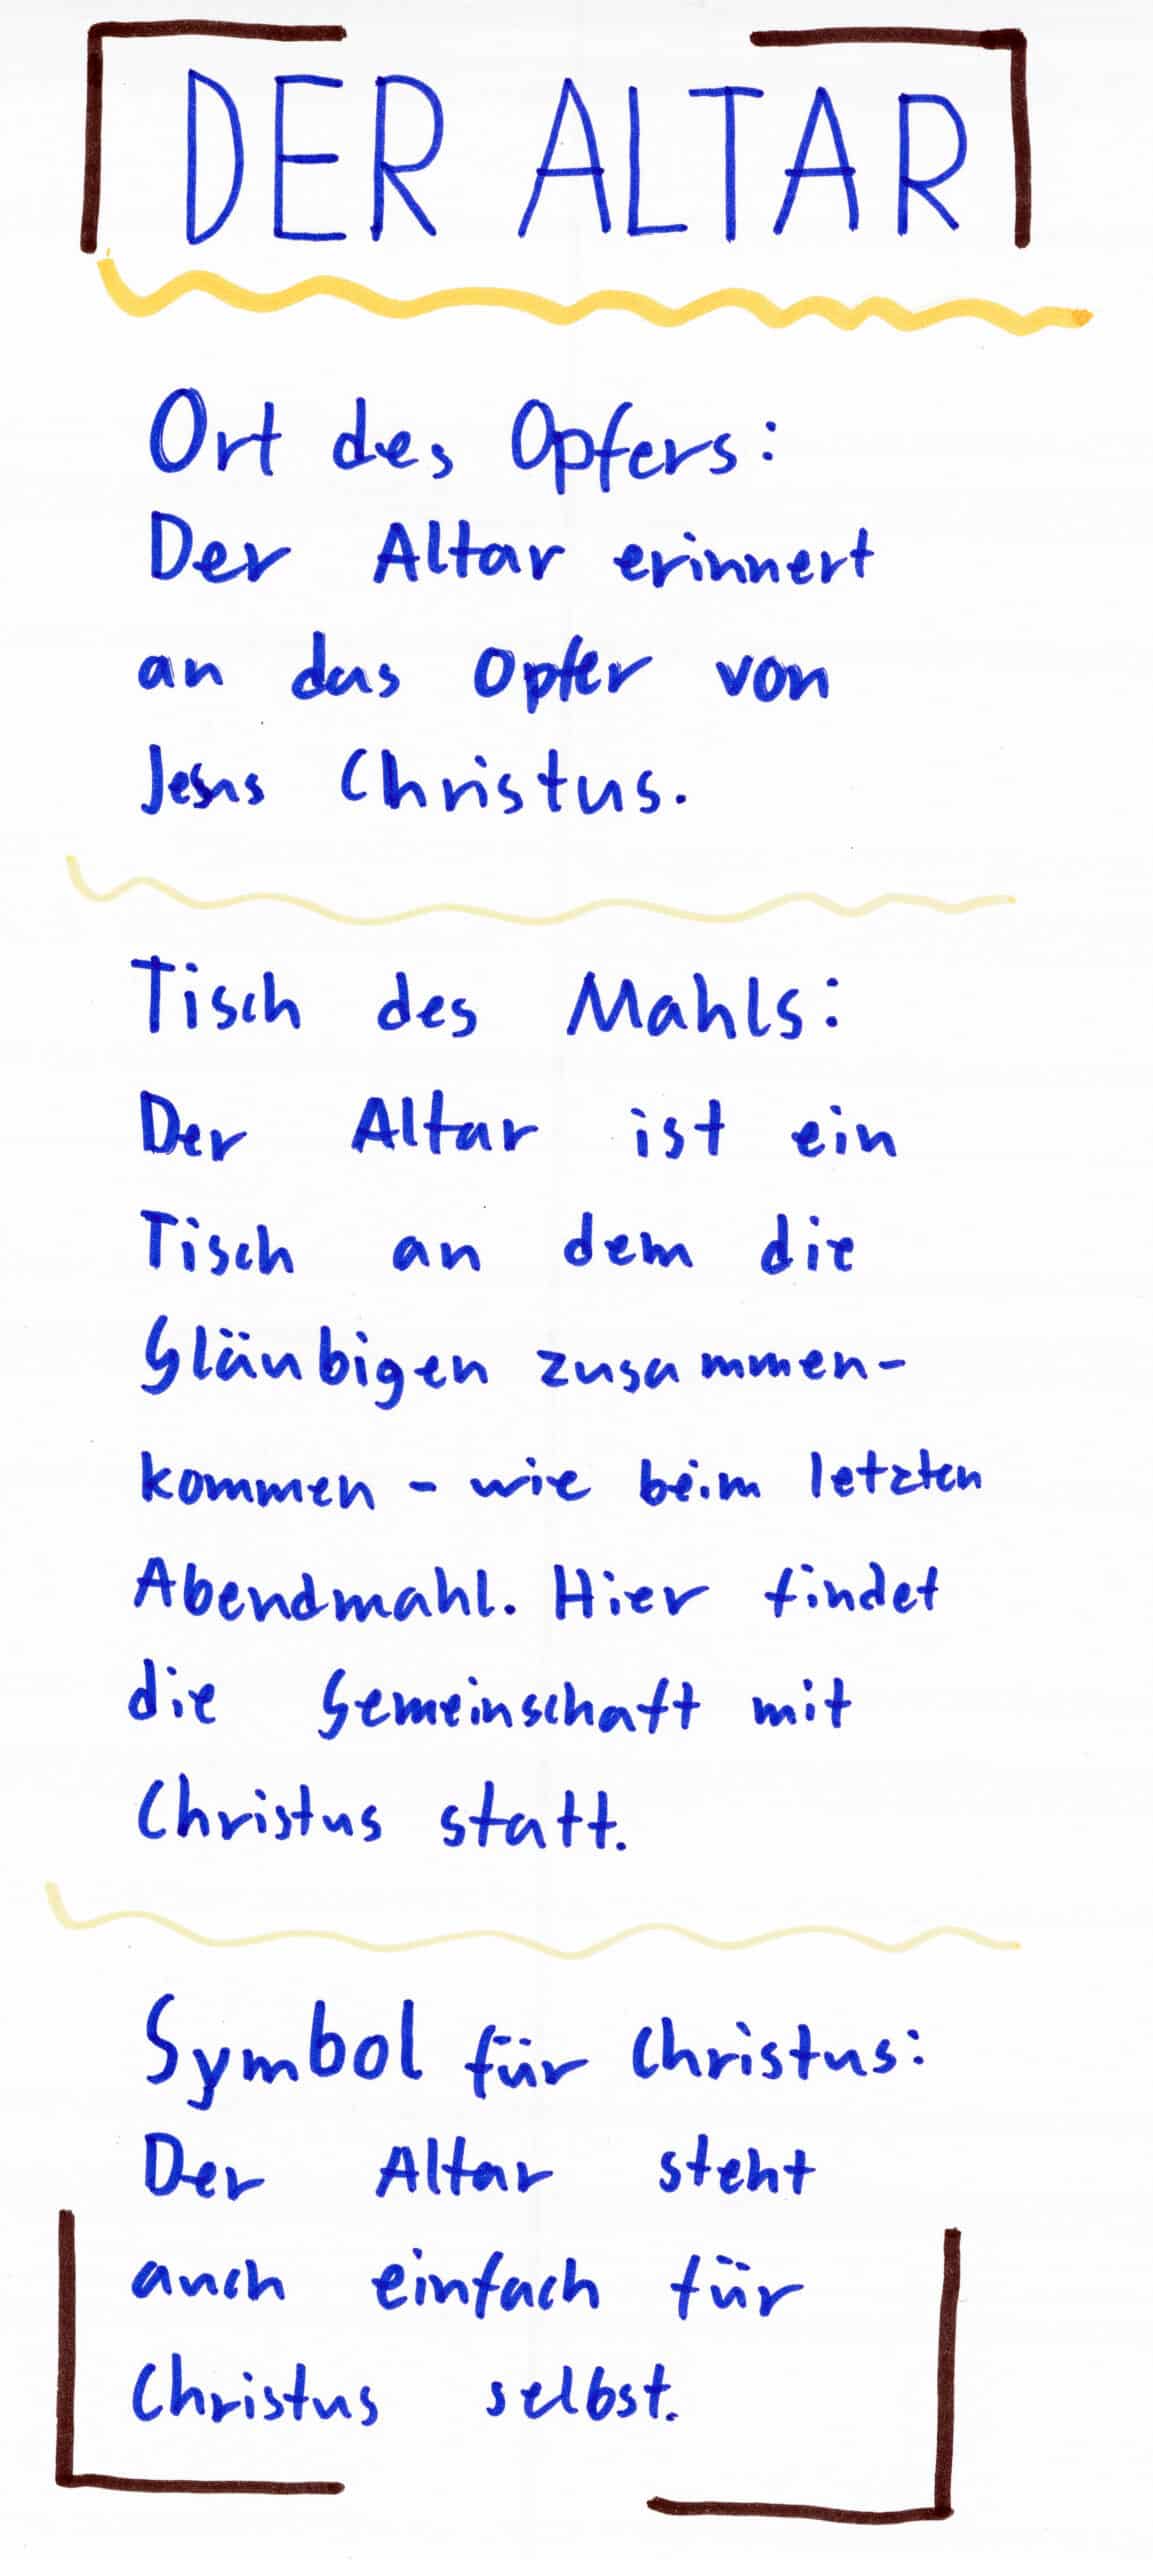 DER ALTAR
Ort des Opfers:
Der Altar erinnert
an das Opfer von
Jesus Christus.
Tisch des Mahls:
Der Altar ist ein
Tisch an dem die
Gläubigen zusammen-
kommen - wie beim letzten
Abendmahl. Hier findet
die Gemeinschaft mit
Christus statt.
Symbol für Christus:
Der Altar steht
auch einfach für
Christus selbst.